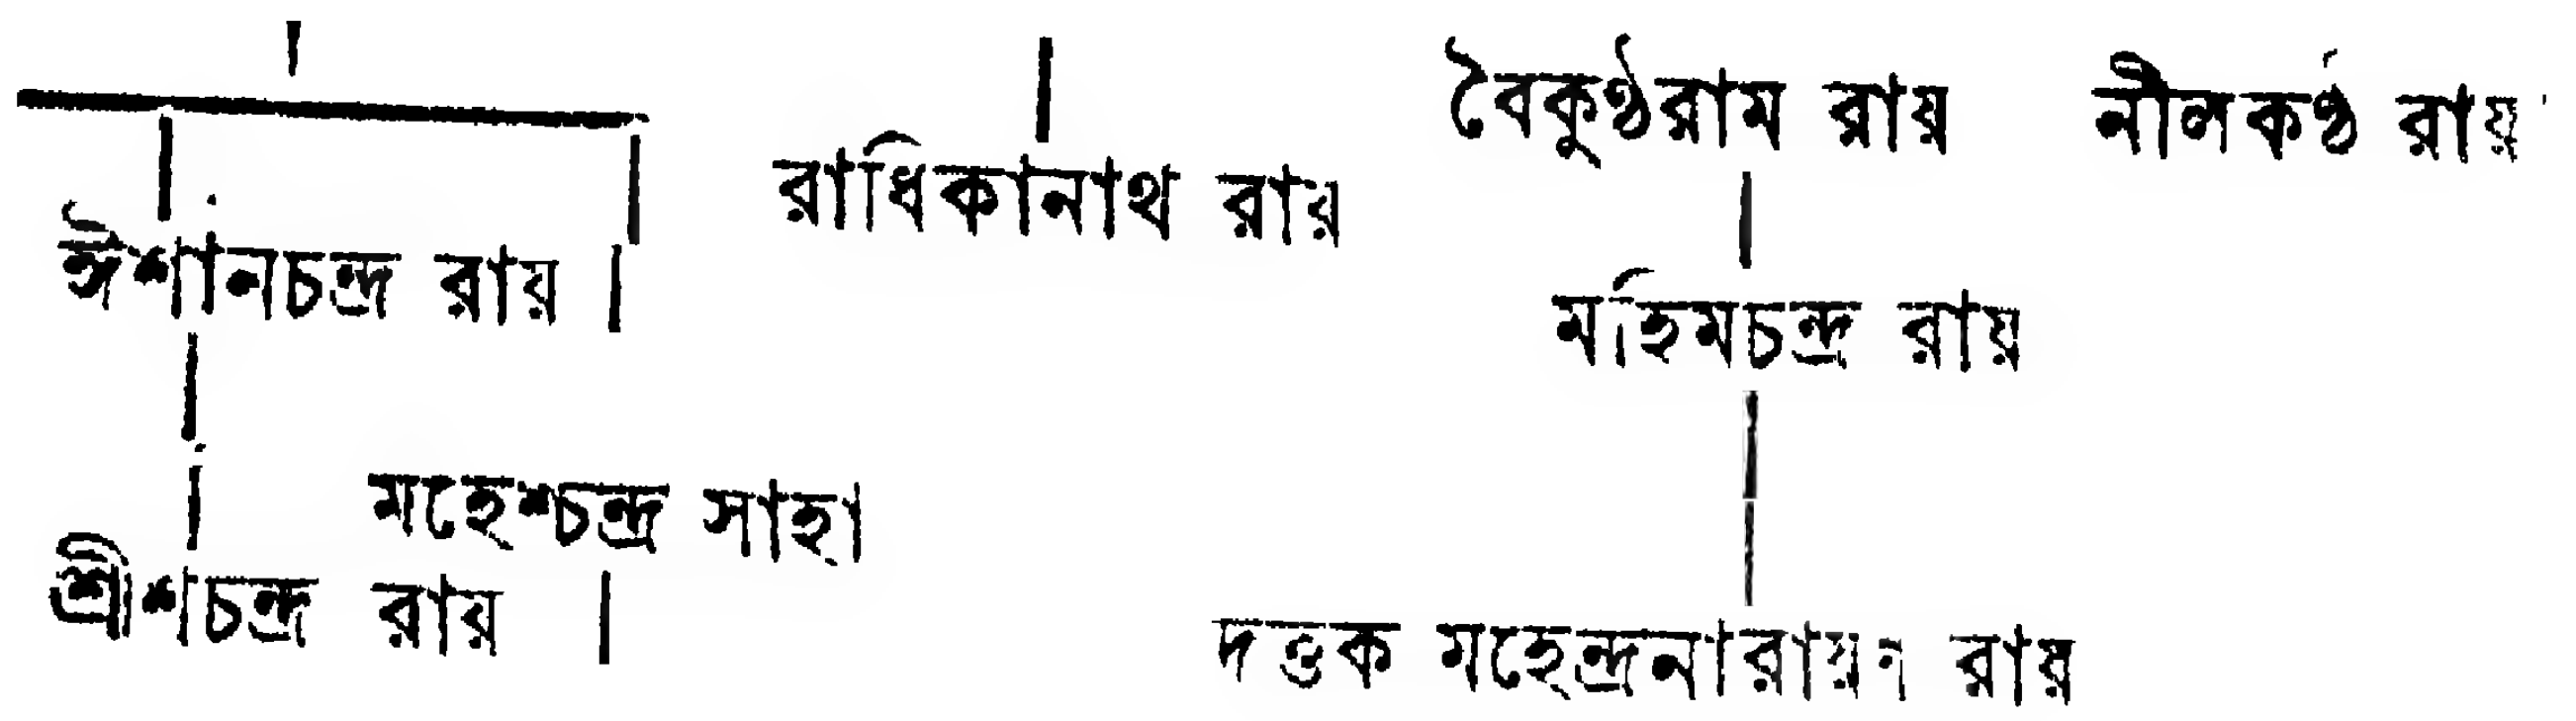 বৈকুণ্ঠরাম রায় নীলকণ্ঠ রায়
রাধিকানাথ রায়
ঈশানচন্দ্র রায়
মহিমচন্দ্র রায়
মহেশ্চন্দ্র সাহা
শ্রীশচন্দ্র রায়
দত্তক মহেন্দ্রনারায়ন রায়